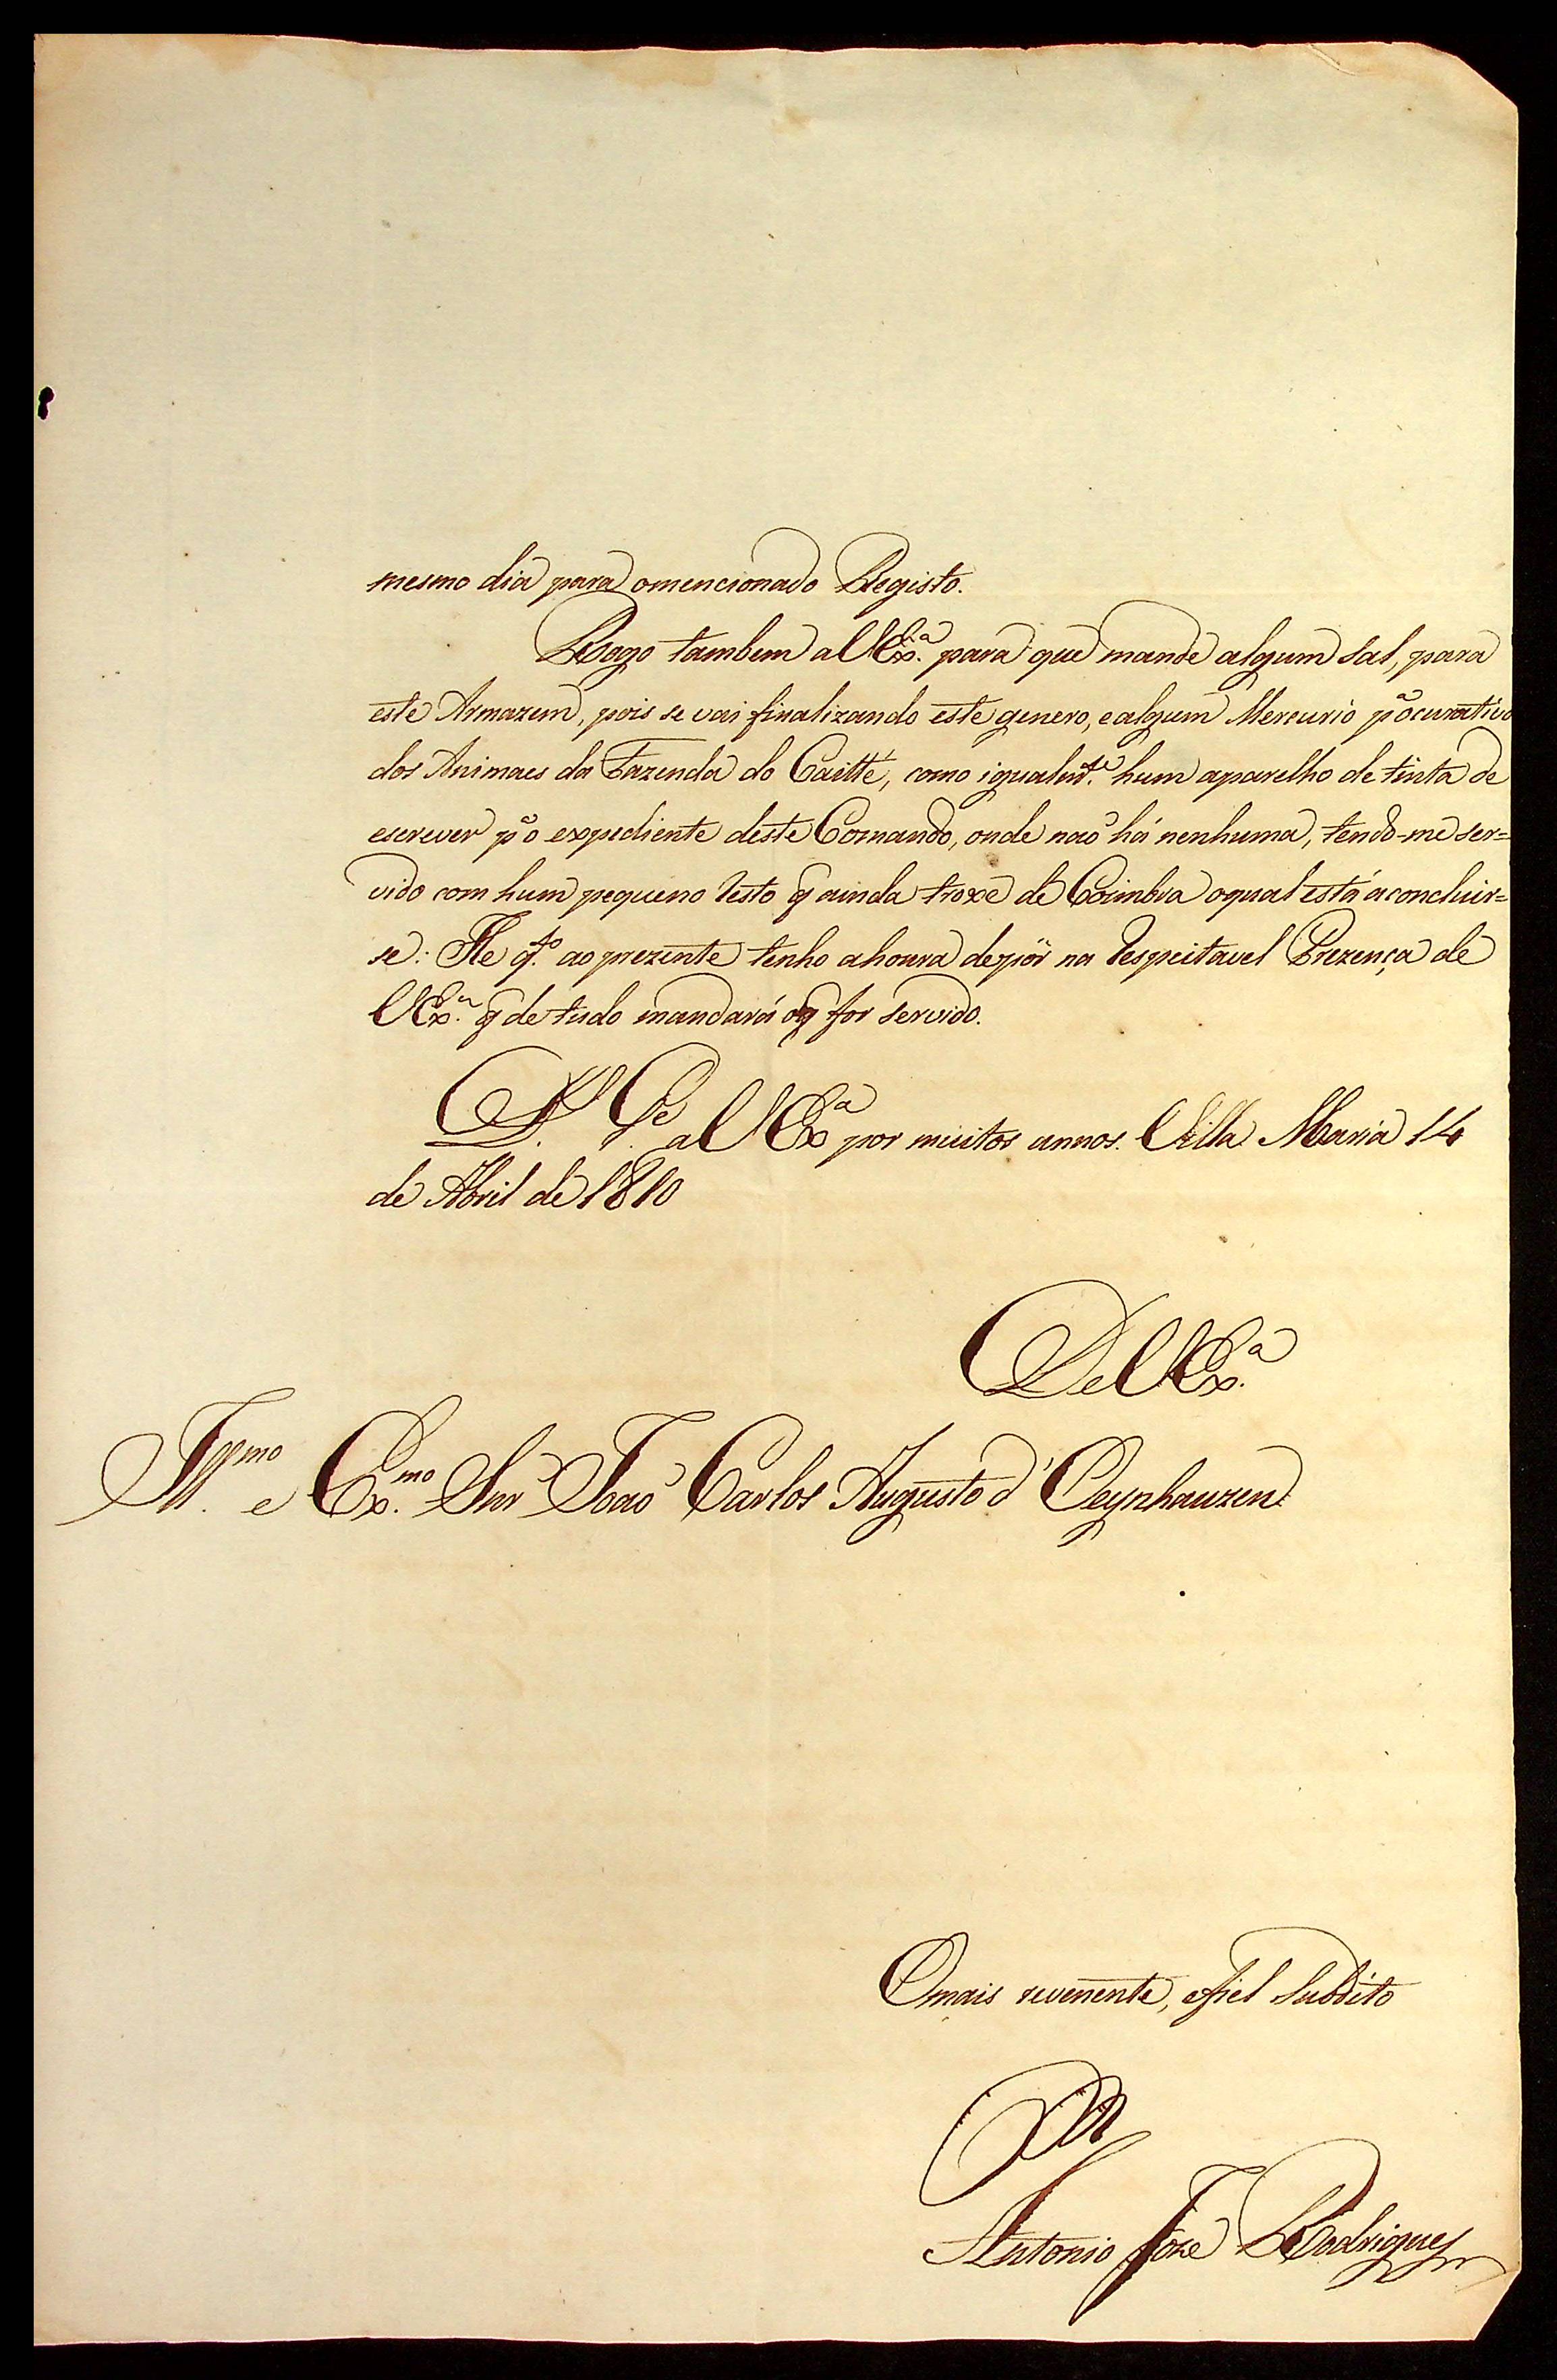 mesmo dia para omencionado Registo.
Rogo tambem a V Ex.ª para que mande algum sal, para
este Armazem, pois se vai finalizando este genero, e algum Mercurio pª o curativo
dos Animaes da Fazenda do Caitté, como igualm.te hum aparelho de tinta de
escrever pª o expediente deste Comando, onde naõ há nenhuma, tendo-me ser=
vido com hum pequeno resto q̃ ainda troxe de Coimbra oqual está aconcluir=
se: He q.to ao prezente tenho ahonra depôr na respeitavel Prezença de
V Ex.ª q̃ de tudo mandará oq̃ for servido.
D.s G.e a V Ex.ª por muitos annos. Villa Maria 14
de Abril de 1810
De V Ex.ª
Ill.mo e Ex.mo Snr Joaõ Carlos Augusto d' Oeynhauzen
Omais reverente, efiel Subdito
Antonio Joze Rodrigues